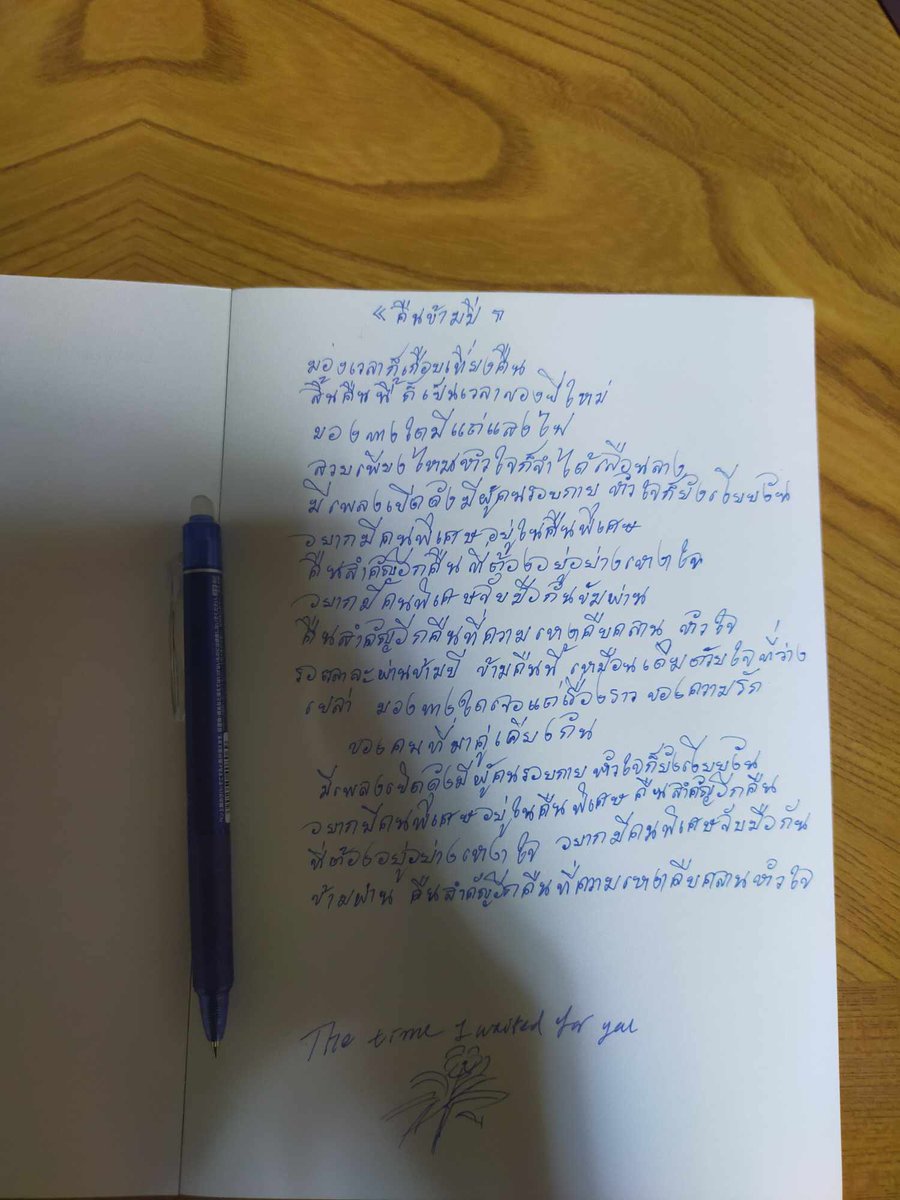 « คืนข้ามปี »
มองเวลาก็เกือบเที่ยงคืน
สิ้นคืนนี้ก็เป็นเวลาของปีใหม่
มองทางใดมีแต่แสงไฟ
สวยเพียงไหนหัวใจก็จำได้เลือนลาง
มีเพลงเปิดดังมีผู้คนรอบกาย หัวใจก็ยังเงียบงัน
อยากมีคนพิเศษอยู่ในคืนพิเศษ
คืนสำคัญอีกคืนที่ต้องอยู่อย่างเหงาใจ
อยากมีคนพิเศษจับมือกันข้ามผ่าน
คืนสำคัญอีกคืนที่ความเหงาคืบคลาน หัวใจ
รอเวลาจะผ่านข้ามปี ข้ามคืนนี้ เหมือนเดิมด้วยใจที่ว่าง
เปล่า มองทางใดเจอแต่เรื่องราว ของความรัก
ของคนที่มาคู่เคียงกัน
มีเพลงเปิดดังมีผู้คนรอบกาย หัวใจก็ยังเงียบงัน
อยากมีคนพิเศษอยู่ในคืนพิเศษ คืนสำคัญอีกคืน
ที่ต้องอยู่อย่างเหงาใจ อยากมีคนพิเศษจับมือกัน
ข้ามผ่าน คืนสำคัญอีกคืนที่ความเหงาคืบคลานหัวใจ
The time I waited for you